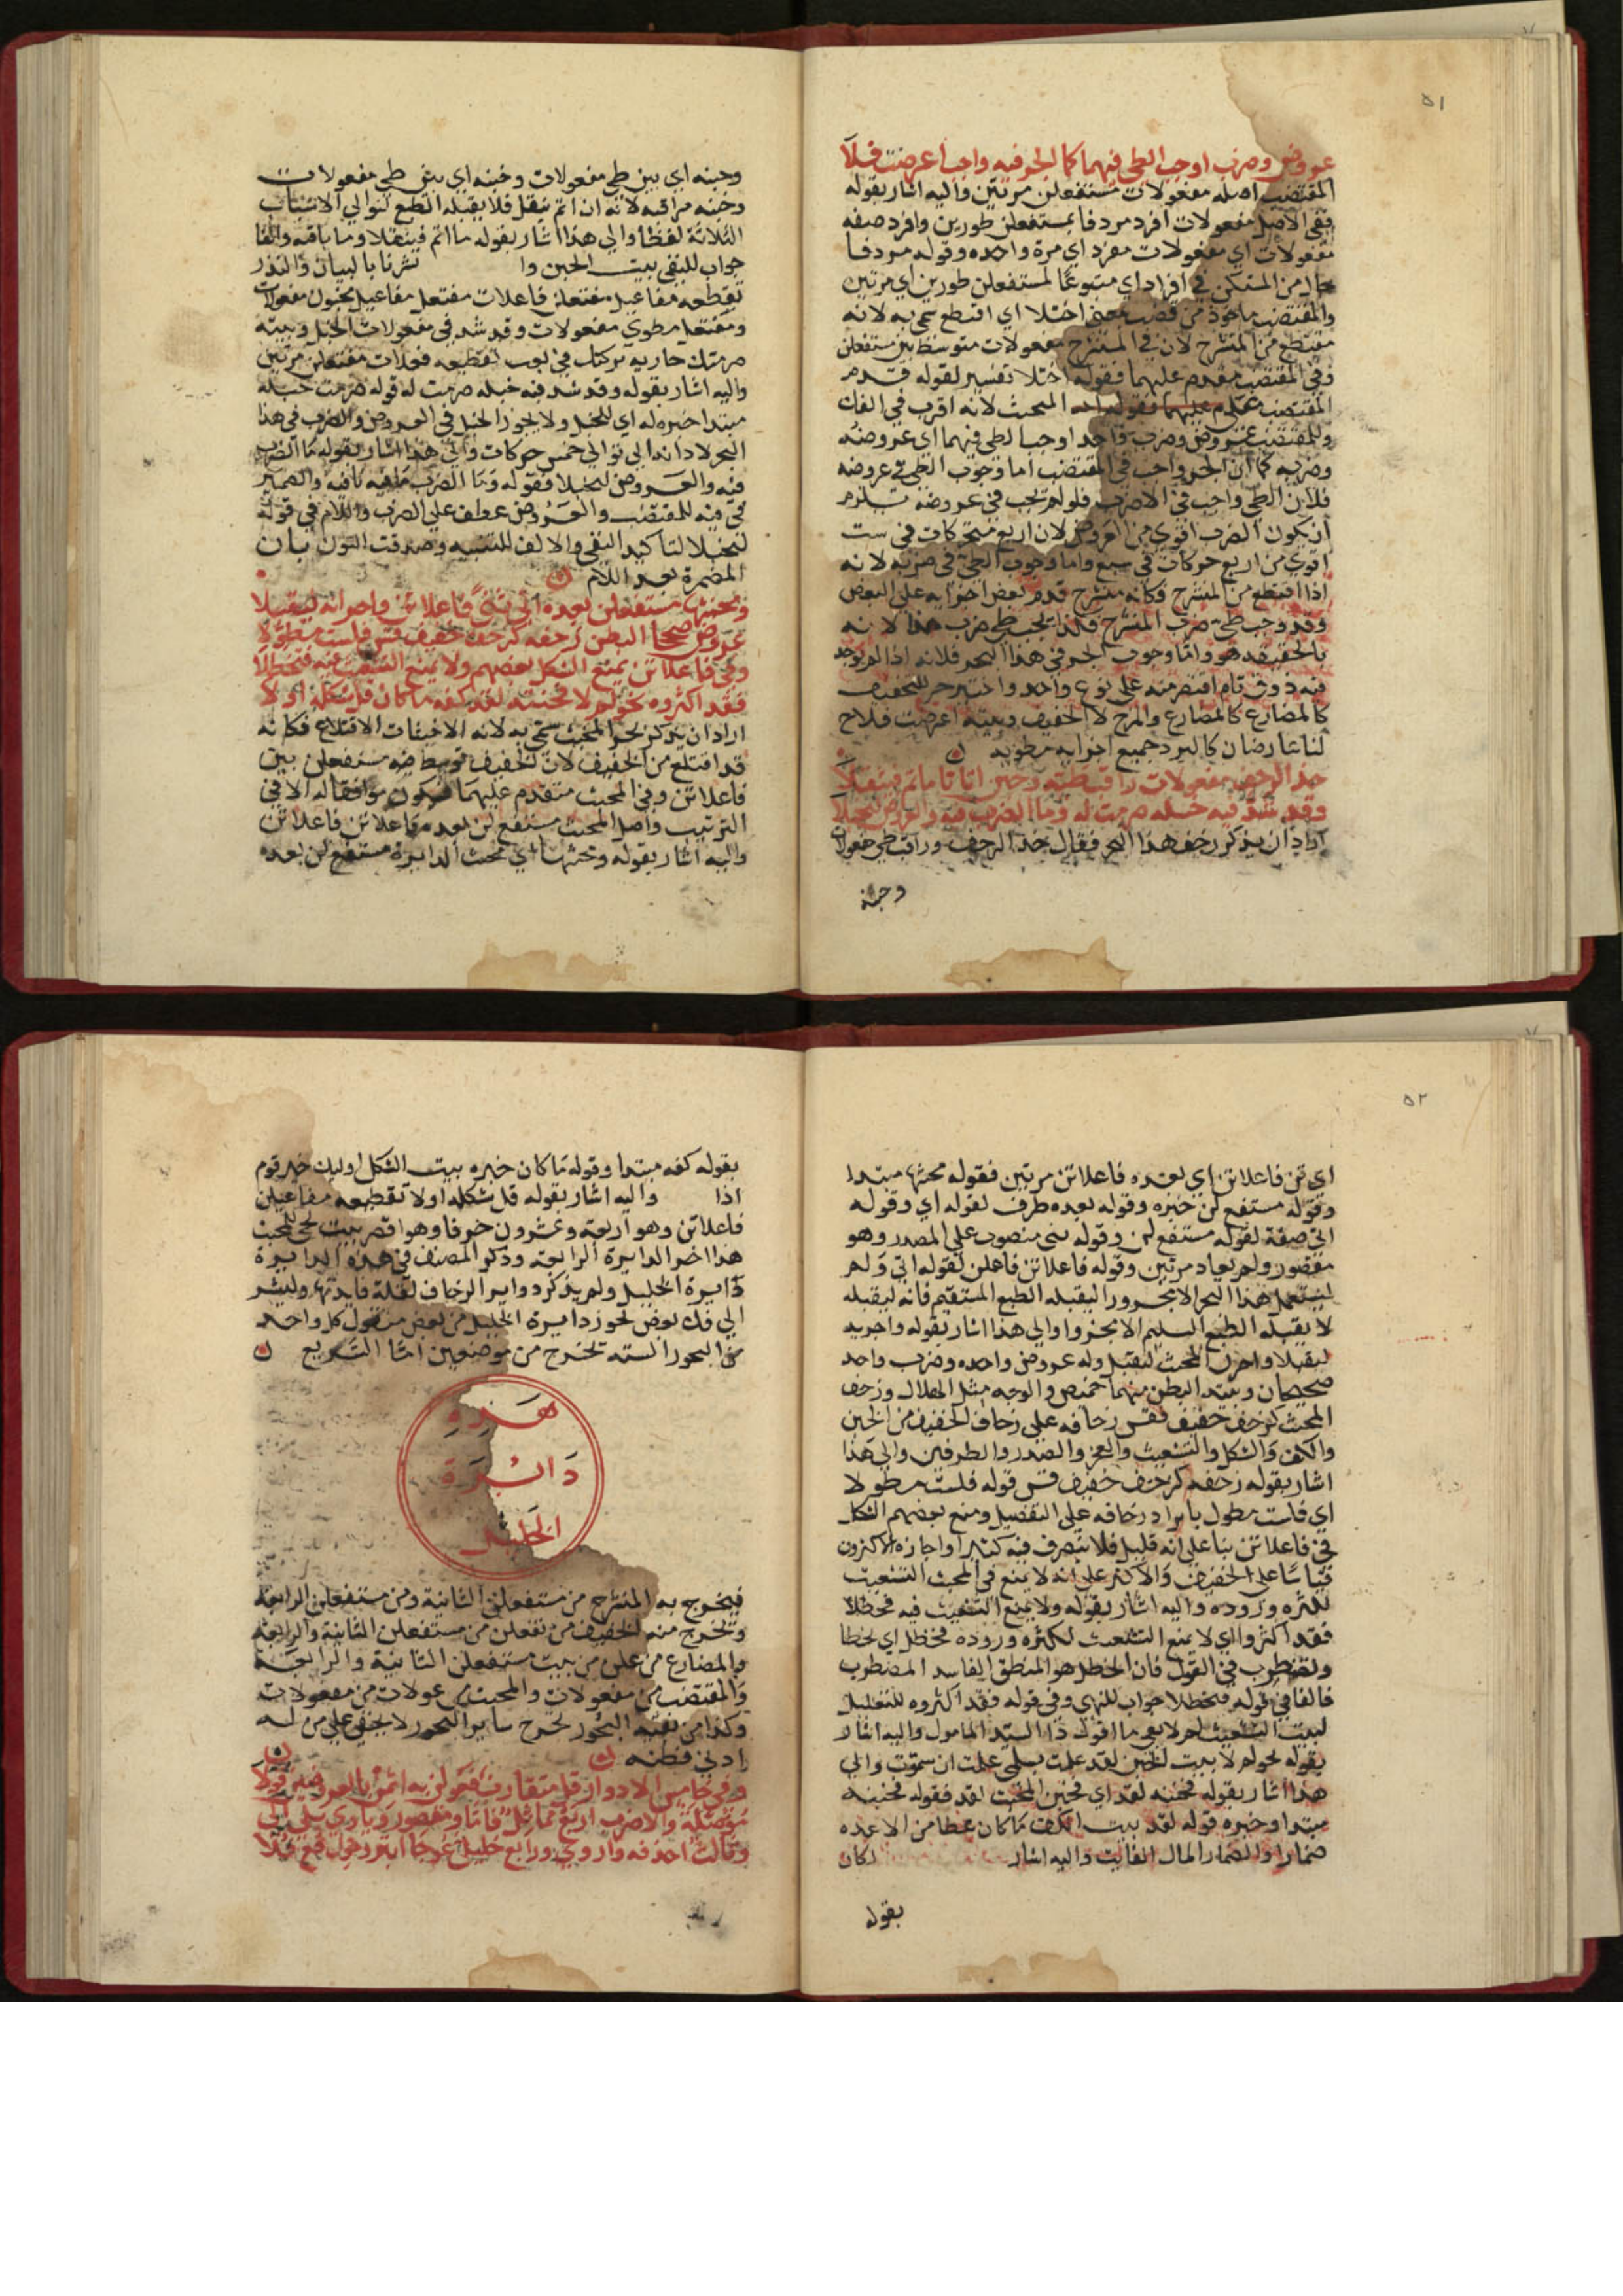 ٥١
عروض وضرب اوجب الطي فيهما كما الجزو فيه واجب اعرضت فلا
المقتضب اصله مفعولات مستفعلن مرتين واليه اشار بقوله
ففي الاصل مفعولات افرد مردفا بمستفعلن طورين وافرد صفه
مفعولات اي مفعولات مفرد اي مرة واحده وقوله مردفا
حال من المستكن في افراد اي متبوعا لمستفعلن طورين اي مرتين
والمقتضب ماخوذ من قضب بمعنى اختلا اي اقتطع سمي به لانه
مقتطع من المنسرح لان في المنسرح مفعولات متوسط بين مستفعلن
وفي المقتضب مقدم عليهما فقوله اختلا تفسير لقوله قدم
المقتضب على المجتث لانه اقرب في الفك
وللمقتضب عروض وضرب واحد اوجب الطي فيهما اي عروضه
وضربه كما ان الجزو واجب في المقتضب اما وجوب الطي في عروضه
فلان الطي واجب في الاضرب فلو لم يجب في عروضه يلزم
ان يكون الضرب اقوي من العروض لان اربع متحركات في ست
اقوي من اربع حركات في سبع واما وجوب الطي في ضربه لانه
اذا اقتطع من المنسرح فكانه منسرح قدم بعض اجزايه علي البعض
وقد وجب طي ضرب المنسرح فلذا يجب طي ضرب هذا لانه
بالحقيقه هو واما وجوب الجزو في هذا البحر فلانه اذا لم يوجد
فيه ذوق تام اقتصر منه على نوع واحد واختير جزء للتخفيف
كالمضارع كالمضارع والهزج لا الخفيف وبيته اعرضت فلاح
لنا عارضان كالبرد جميع اجزايه مطويه
خذ الزحف بمفعولات راقب طيه وخبن اتاتا ما تم فينقلا
وقد شذ فيه خبله صرمت له وما الضرب فيه والعروض ليخبلا
اراد ان يذكر زحف هذا البحر فقال خذ الزحف وراقب طي مفعولات
وخبنه
وخبنه اي بين طي مفعولات وخبنه اي بين طي مفعولات
وخبنه مراقبه لانه ان اتم ثقل فلا يقبله الطبع لتوالي الاسباب
الثلاثة لفظا والي هذا اشار بقوله ما اتم فينقلا وما نافيه والفا
جواب للنفي بيت الخبن وا نشرنا بالبيان والنذر
تقطيعه مفاعيل مفتعلن فاعلات مفتعل مفاعيل مخبون مفعولات
ومفتعل مطوي مفعولات وقد شذ في مفعولات الخبل وبيته
صرمتك جاريه تركتك في تعب تقطيعه فعلات مفتعلن مرتين
واليه اشار بقوله وقد شذ فيه خبله صرمت له قوله صرمت خبله
مبتدا خبره له اي للخبل ولا يجوز الخبل في العروض والضرب في هذا
البحر لادائه الي توالي خمس حركات والي هذا اشار بقوله ما الضرب
فيه والعروض ليخبلا فقوله وما الضرب مانيه نافيه والضمير
في فيه للمقتضب والعروض عطف علي الضرب واللام في قوله
ليخبلا لتاكيد النفي والالف للتثنيه وحذفت النون بان
المضمرة بعد اللام
ومجتثها مستفعلن بعده الي بني فاعلاتن واجزائه ليقبلا
عروض صحيحا البطن زحفه كزحف خفيف قس فلست مطولا
وفي فاعلاتن يمنع الشكل بعضهم ولا يمنع التشعيث فيه فتخطلا
فقد اكثروه نحو لم لا فخبنه لقد كفه ما كان قل شكله اولا
اراد ان يذكر بحر المجتث سمي به لانه الاجتثاث الاقتلاع فكانه
قد اقتلع من الخفيف لان الخفيف توسط فيه مستفعلن بين
فاعلاتن وفي المجتث متقدم عليهما فيكون موافقا له الا في
الترتيب واصل المجتث مستفع لن بعد فاعلاتن فاعلاتن
واليه اشار بقوله ومجتثها اي مجتث الدايرة مستفع لن بعده
٥٢
اي تن فاعلاتن اي بعده فاعلاتن مرتين فقوله مجتثها مبتدا
وقوله مستفع لن خبره وقوله بعده ظرف لقوله اي وقوله
اتي صفة لقوله مستفع لن وقوله بني منصوب علي المصدر وهو
مقصور ولم يعاد مرتين وقوله فاعلاتن فاعلن لقوله اتي ولم
يستعمل هذا البحر الا مجزورا ليقبله الطبع المستقيم فانه ليقبله
لا يقبله الطبع السليم الا مجزوا والي هذا اشار بقوله واجزيه
ليقبلا واجزاء المجتث ليقبل وله عروض واحده وضرب واحد
صحيحان وبيته البطن منهما خميص والوجه مثل الهلال وزحف
المجتث كزحف خفيف فقس زحافه علي زحاف الخفيف من الخبن
والكف والشكل والتشعيث والعجز والصدر والطرفين والي هذا
اشار بقوله زحفه كزحف خفيف قس قوله فلست مطولا
اي فلست مطول بايراد زحافه علي التفصيل ومنع بعضهم الشكل
في فاعلاتن بنا علي انه قليل فلا يتصرف فيه كثيرا واجازه الاكثرون
قياسا على الخفيف والاكثر علي انه لا يمنع في المجتث التشعيث
لكثره وروده واليه اشار بقوله ولا يمنع التشعيث فيه فتخطلا
فقد اكثروا اي لا يمنع التشعيث لكثره وروده فتخطل اي تخطا
وتضطرب في القول فان الخطل هو المنطق الفاسد المضطرب
فالفا في قوله فتخطلا جواب للنهي وفي قوله فقد اكثروه للتعليل
لبيت التشعيث لم لا يعي ما اقول ذا السيد المامول واليه اشار
بقوله نحو لم لا بيت الخبن لقد علمت بسلمي علمت ان ستموت والي
هذا اشار بقوله فخبنه لقد اي فخبن المجتث لقد فقوله فخبنه
مبتدا وخبره قوله لقد بيت الكف ما كان عطاءمن الا عده
ضمارا والضمار المال الغايب واليه اشار كان
بقوله
بقوله كفه مبتدا وقوله ما كان خبره بيت الشكل اوليك خير قوم
اذا واليه اشار بقوله قل شكله اولا تقطيعه مفاعلن
فاعلاتن وهو اربعة وعشرون حرفا وهو اقصر بيت يجي للمجتث
هذا اخر الدايرة الرابعه وذكر المصنف في هذه الدايرة
دايرة الخليل ولم يذكر دواير الزحاف لقلة فايدتها وليشر
الي فك بعض بحور دايرة الخليل من بعض منقول كل واحد
من البحور السته تخرج من موضعين اما السريع
هذه
دائرة
الخليل
فيخرج به المنسرح من مستفعلن الثانية ومن مستفعلن الرابعة
وتخرج منه الخفيف من تفعلن من مستفعلن الثانية والرابعة
والمضارع من علن من بيت مستفعلن الثانية والرابعة
والمقتضب من مفعولات والمجتث من عولات من مفعولات
وكذا من بقية البحور تخرج ساير البحور لا يخفى علي من له
ادني فطنه
وفي خامس الادوار قل متقارب فعولن به اثمن بالعروضين قولا
وثالث احذفه واروي ورابع خليلي عوجا ابتر